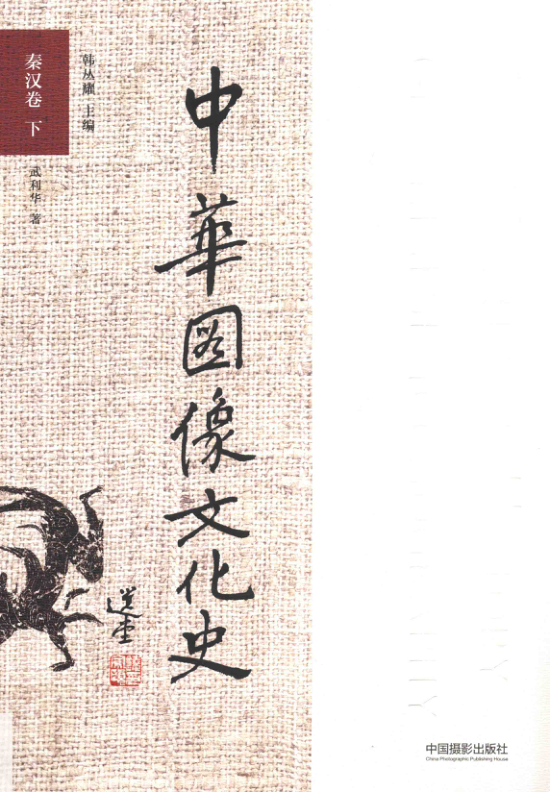 秦汉卷 下
韩丛耀 主编
武利华 著
中華图像文化史
中国摄影出版社
China Photographic Publishing House